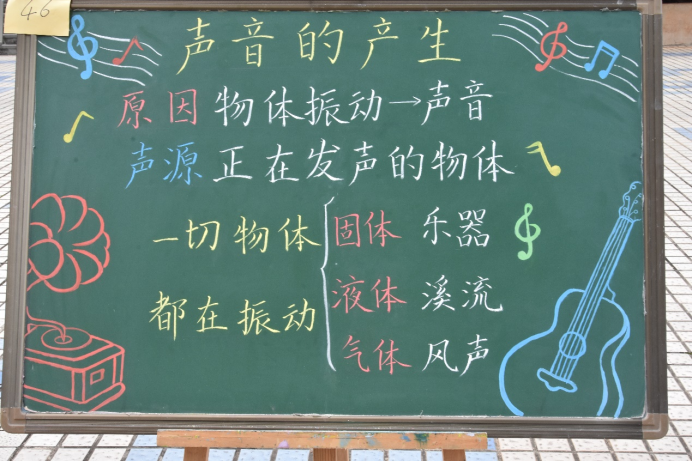 46
声音的产生
原因 物体振动→声音
声源 正在发声的物体
一切物体
都在振动
固体 乐器
液体 溪流
气体 风声